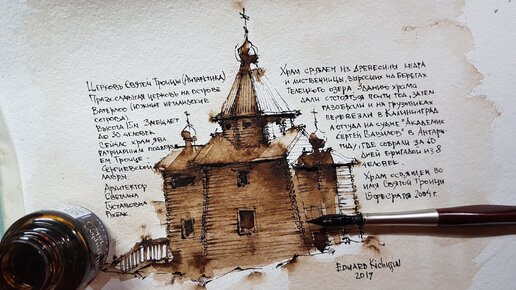 Церковь Святой Троицы (Антарктика)
Православная церковь на острове
Ватерлоо (Южные Шетландские
острова).
Высота 15м. Вмещает
до 30 человек.
Сейчас храм явл.
патриаршим подворь
ем Троице-
Сергиевской
лавры.
Архитектор
Светлана
Густавовна
Рыбак.
Храм срублен из древесины кедра
и лиственницы, выросших на берегах
Телецкого озера. Зданию храма
дали отстояться почти год, затем
разобрали и на грузовиках
перевезли в Калининград
а оттуда на судне "Академик
Сергей Вавилов" в Антарк
тиду, где собрали за 60
дней бригадой из 8
человек.
Храм освящен во
имя Святой Троицы
15 февраля 2004 г.
Eduard Kichigin
2019